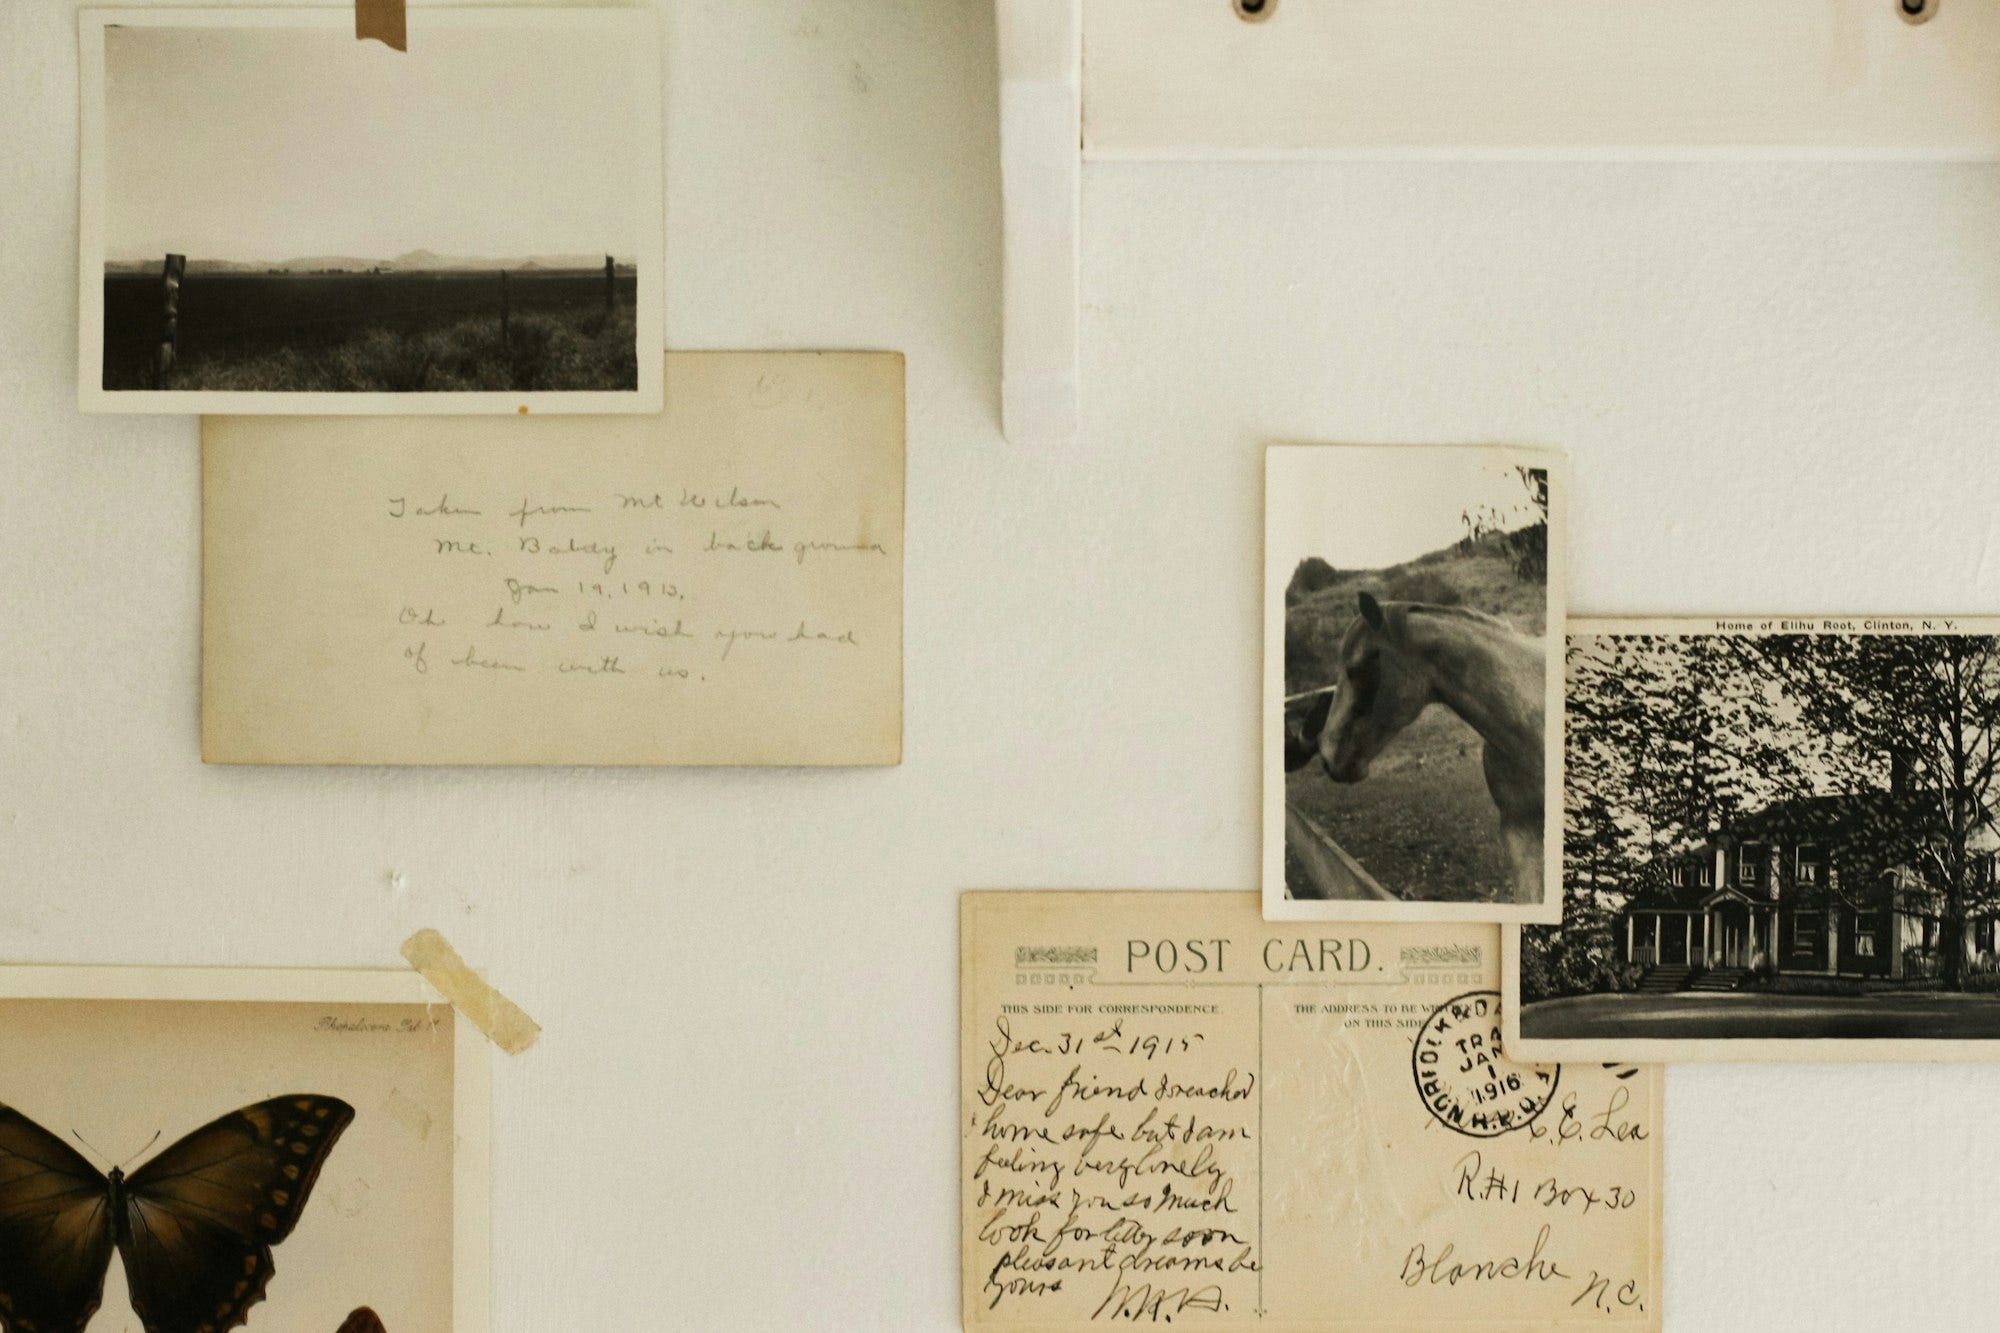 Taken from Mt Wilson
Mt. Baldy in back ground
Jan 19, 1913.
Oh how I wish you had
of been with us.
Home of Elihu Root, Clinton, N. Y.
POST CARD.
THIS SIDE FOR CORRESPONDENCE.
THE ADDRESS TO BE
ON THIS SIDE
Dec. 31st 1915
Dear friend I reached
home safe but I am
feeling very lonely
I miss you so much
look for letter soon
pleasant dreams be
yours
TR
JAN
1
1916
R.P.O.
C.E. Lea
R.#1 Box 30
Blanche
N.C.